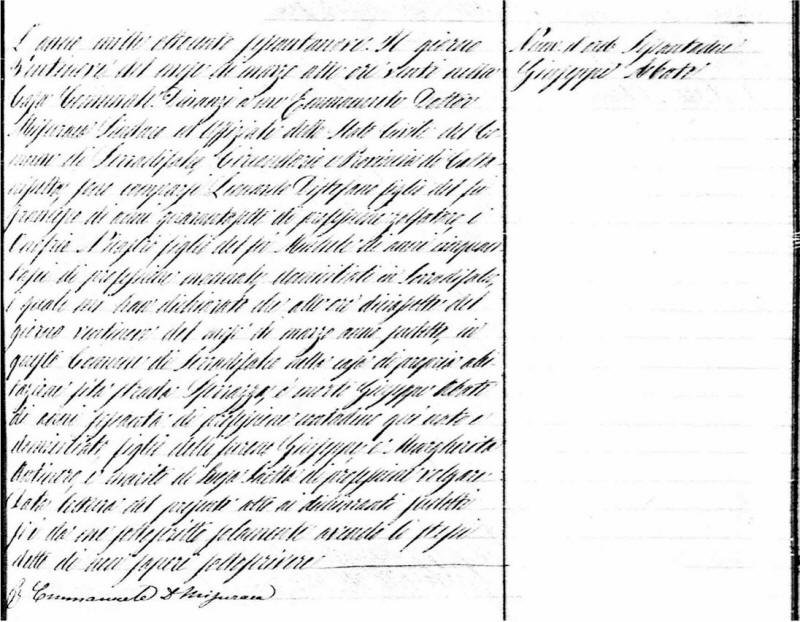 L'anno mille ottocento sessantanove. Il giorno
ventinove del mese di marzo alle ore venti nella
Casa Comunale. Dinanzi a me Emmanuele Dottor
Misuraca Sindaco ed Uffiziale dello Stato Civile del Co
mune di Serradifalco, Circondario e Provincia di Calta
nissetta, sono comparsi Leonardo Distefano figlio del fu
di anni quarantasette di professione zolfataro, e
figlio del fu Michele di anni cinquan
tasei di professione domiciliati in Serradifalco,
i quali mi han dichiarato che alle ore diciassette del
giorno ventinove del mese di marzo anno suddetto, in
questo Comune di Serradifalco nella casa di propria abi
tazione sita strada è morto Giuseppe Abate
di anni sessanta di professione contadino qui nato e
domiciliato, figlio delle furono Giuseppe e Margherita
e marito di di professione
Data lettura del presente atto ai dichiaranti suddetti
si è da me sottoscritto solamente avendo li stessi
detto di non sapere sottoscrivere
Emmanuele Dr Misuraca
Num. d'ord. Sessantadue
Giuseppe Abate